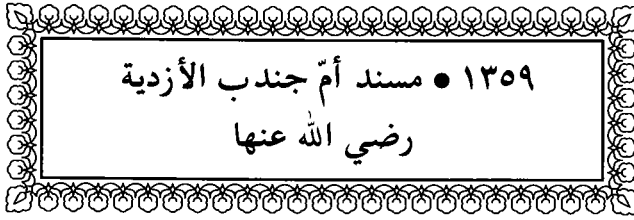 ١٣٥٩ ● مسند أمّ جندب الأزدية
رضي الله عنها